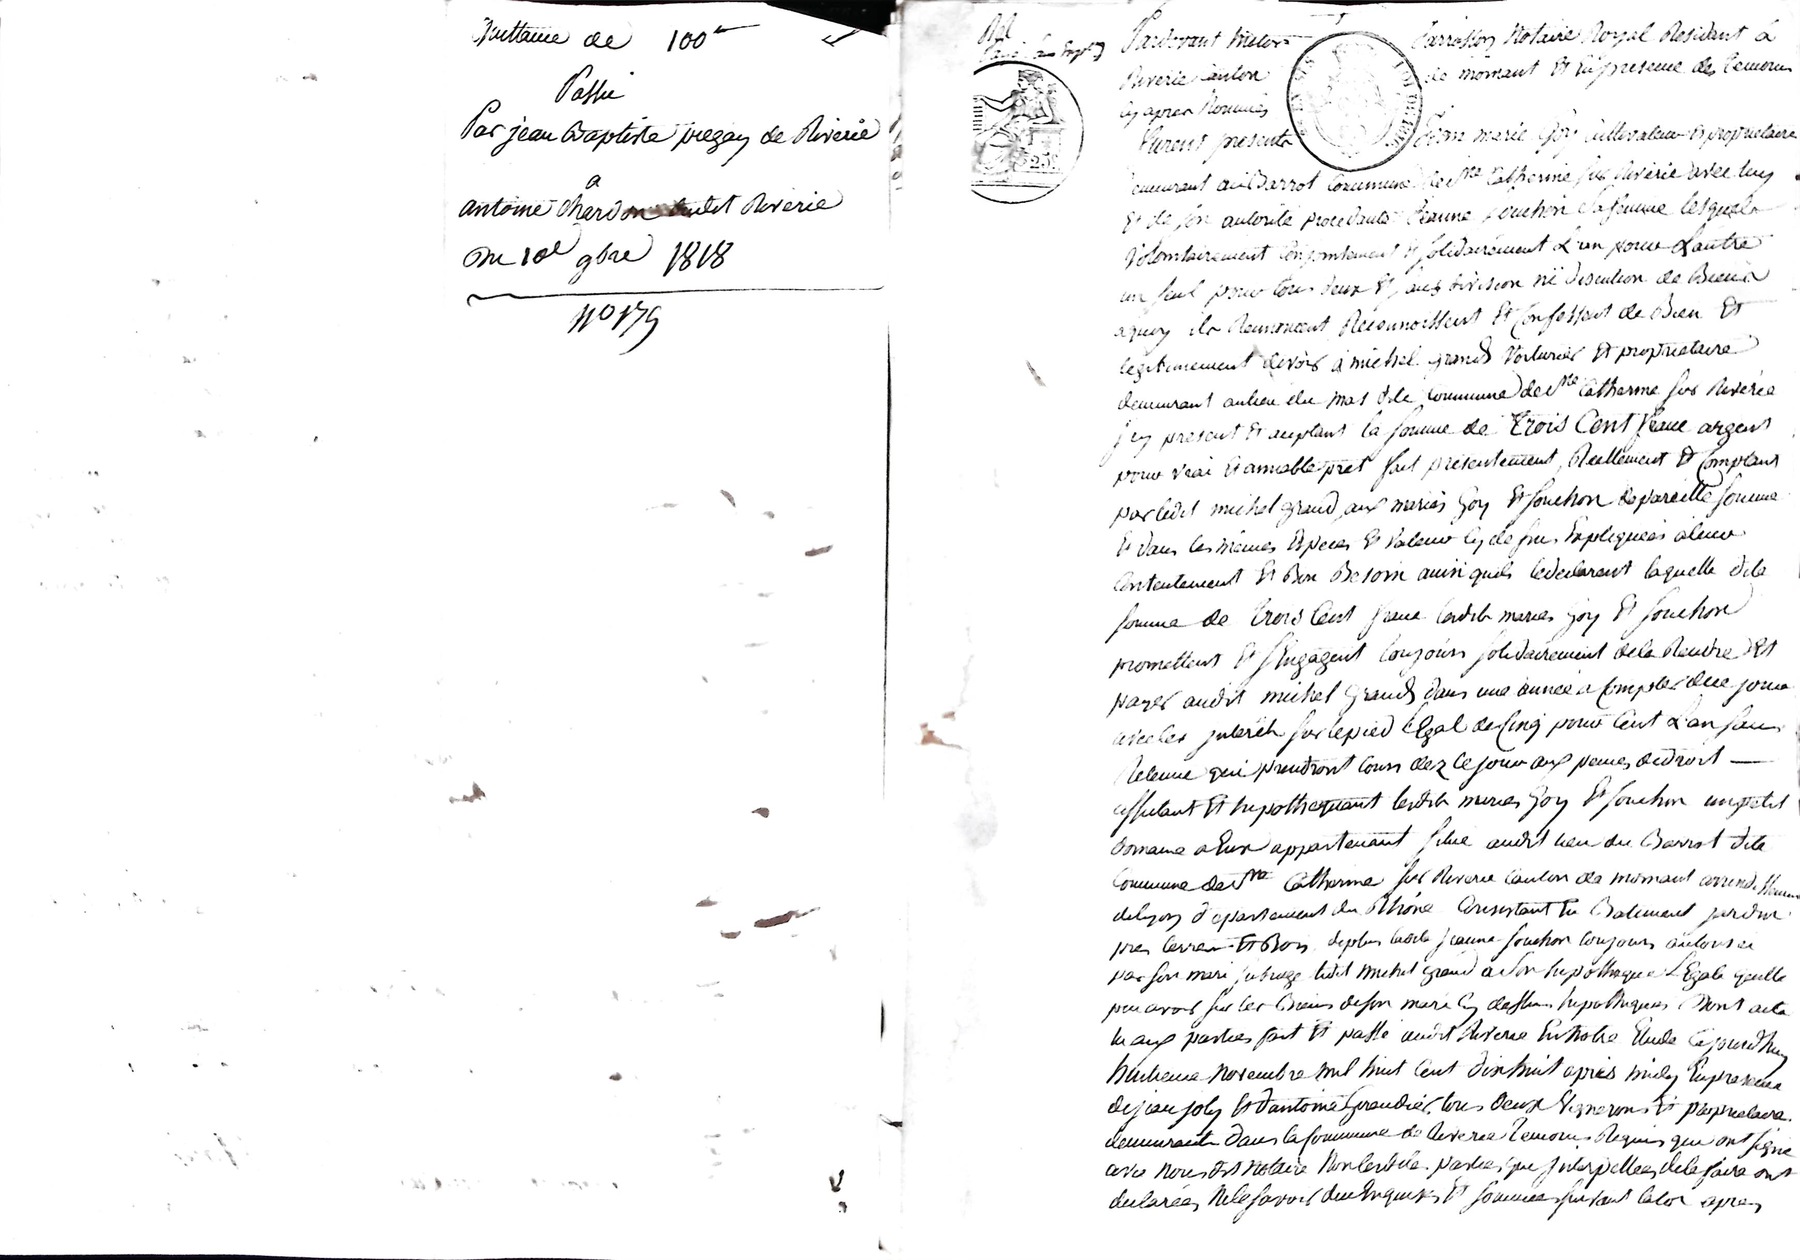 quittance de 100
Passée
Par jean Baptiste prezay de Riverie
a
antoine Chardon dudit Riverie
Du 10 9bre 1818
N° 179
Pardevant Notaire Royal Residant à
Riverie Canton de mornant Et En presence des temoins
cy apres Nommés
Furent presents Jean marie Goy cultivateur et proprietaire
demeurant au Barrot Commune de Ste Catherine sur Riverie avec luy
Et de son autorité procedante Jeanne souchon sa femme lesquels
Volontairement Conjointement Et solidairement L'un pour L'autre
un seul pour tous deux Et sans division ni discution de Biens
aquoy ils Renoncent Reconnoissent Et Confessent de Bien Et
legitimement devoir à michel grand Voiturier Et proprietaire
demeurant au lieu du mas dite Commune de Ste Catherine sur Riverie
jcy present Et aceptant la somme de Trois Cent franc argent
pour vrai Et amiable pret fait presentement, Reellement Et Comptant
par ledit michel grand aux mariés Goy Et souchon de pareille somme
Et dans les mêmes Especes Et Valeur cy dessus Expliquées à leur
Contentement Et Bon Besoin ainsi quils le declarent laquelle dite
somme de trois Cent franc lesdits mariés Goy Et souchon
promettent Et s'Engagent toujours solidairement de la Rendre Et
payer audit michel grand dans une année a Compter de ce jour
avec les jnterêts sur le pied Legal de Cinq pour Cent L'an sans
Retenue qui prendront Cours dez ce jour aux peines de droit —
affectant Et hypothequant lesdits mariés Goy Et souchon un petit
Domaine a Eux appartenant situé audit lieu du Barrot dite
Commune de Ste Catherine sur Riverie Canton de mornant arrondissement
de lyon departement du Rhône Consistant En Batiment jardin
pres terres Et Bois, deplus ladite jeanne souchon toujours autorisée
par son mari subroge ledit michel grand a son hypotheque Legale quelle
peu avoir sur les Biens de son mari cy dessus hypothequés Dont acte
lu aux parties fait Et passé audit Riverie En Notre Etude Cejourdhuy
huitieme Novembre mil huit Cent dix huit après midy En presence
de jean joly Et d'antoine Grandier tous deux Vignerons Et proprietaires
demeurants dans la Commune de Riverie temoins Requis qui ont signé
avec Nous dit Notaire Non lesdites parties que jnterpellées de le faire ont
declarées Ne le savoir de ce Enquises Et sommées suivant la loi apres